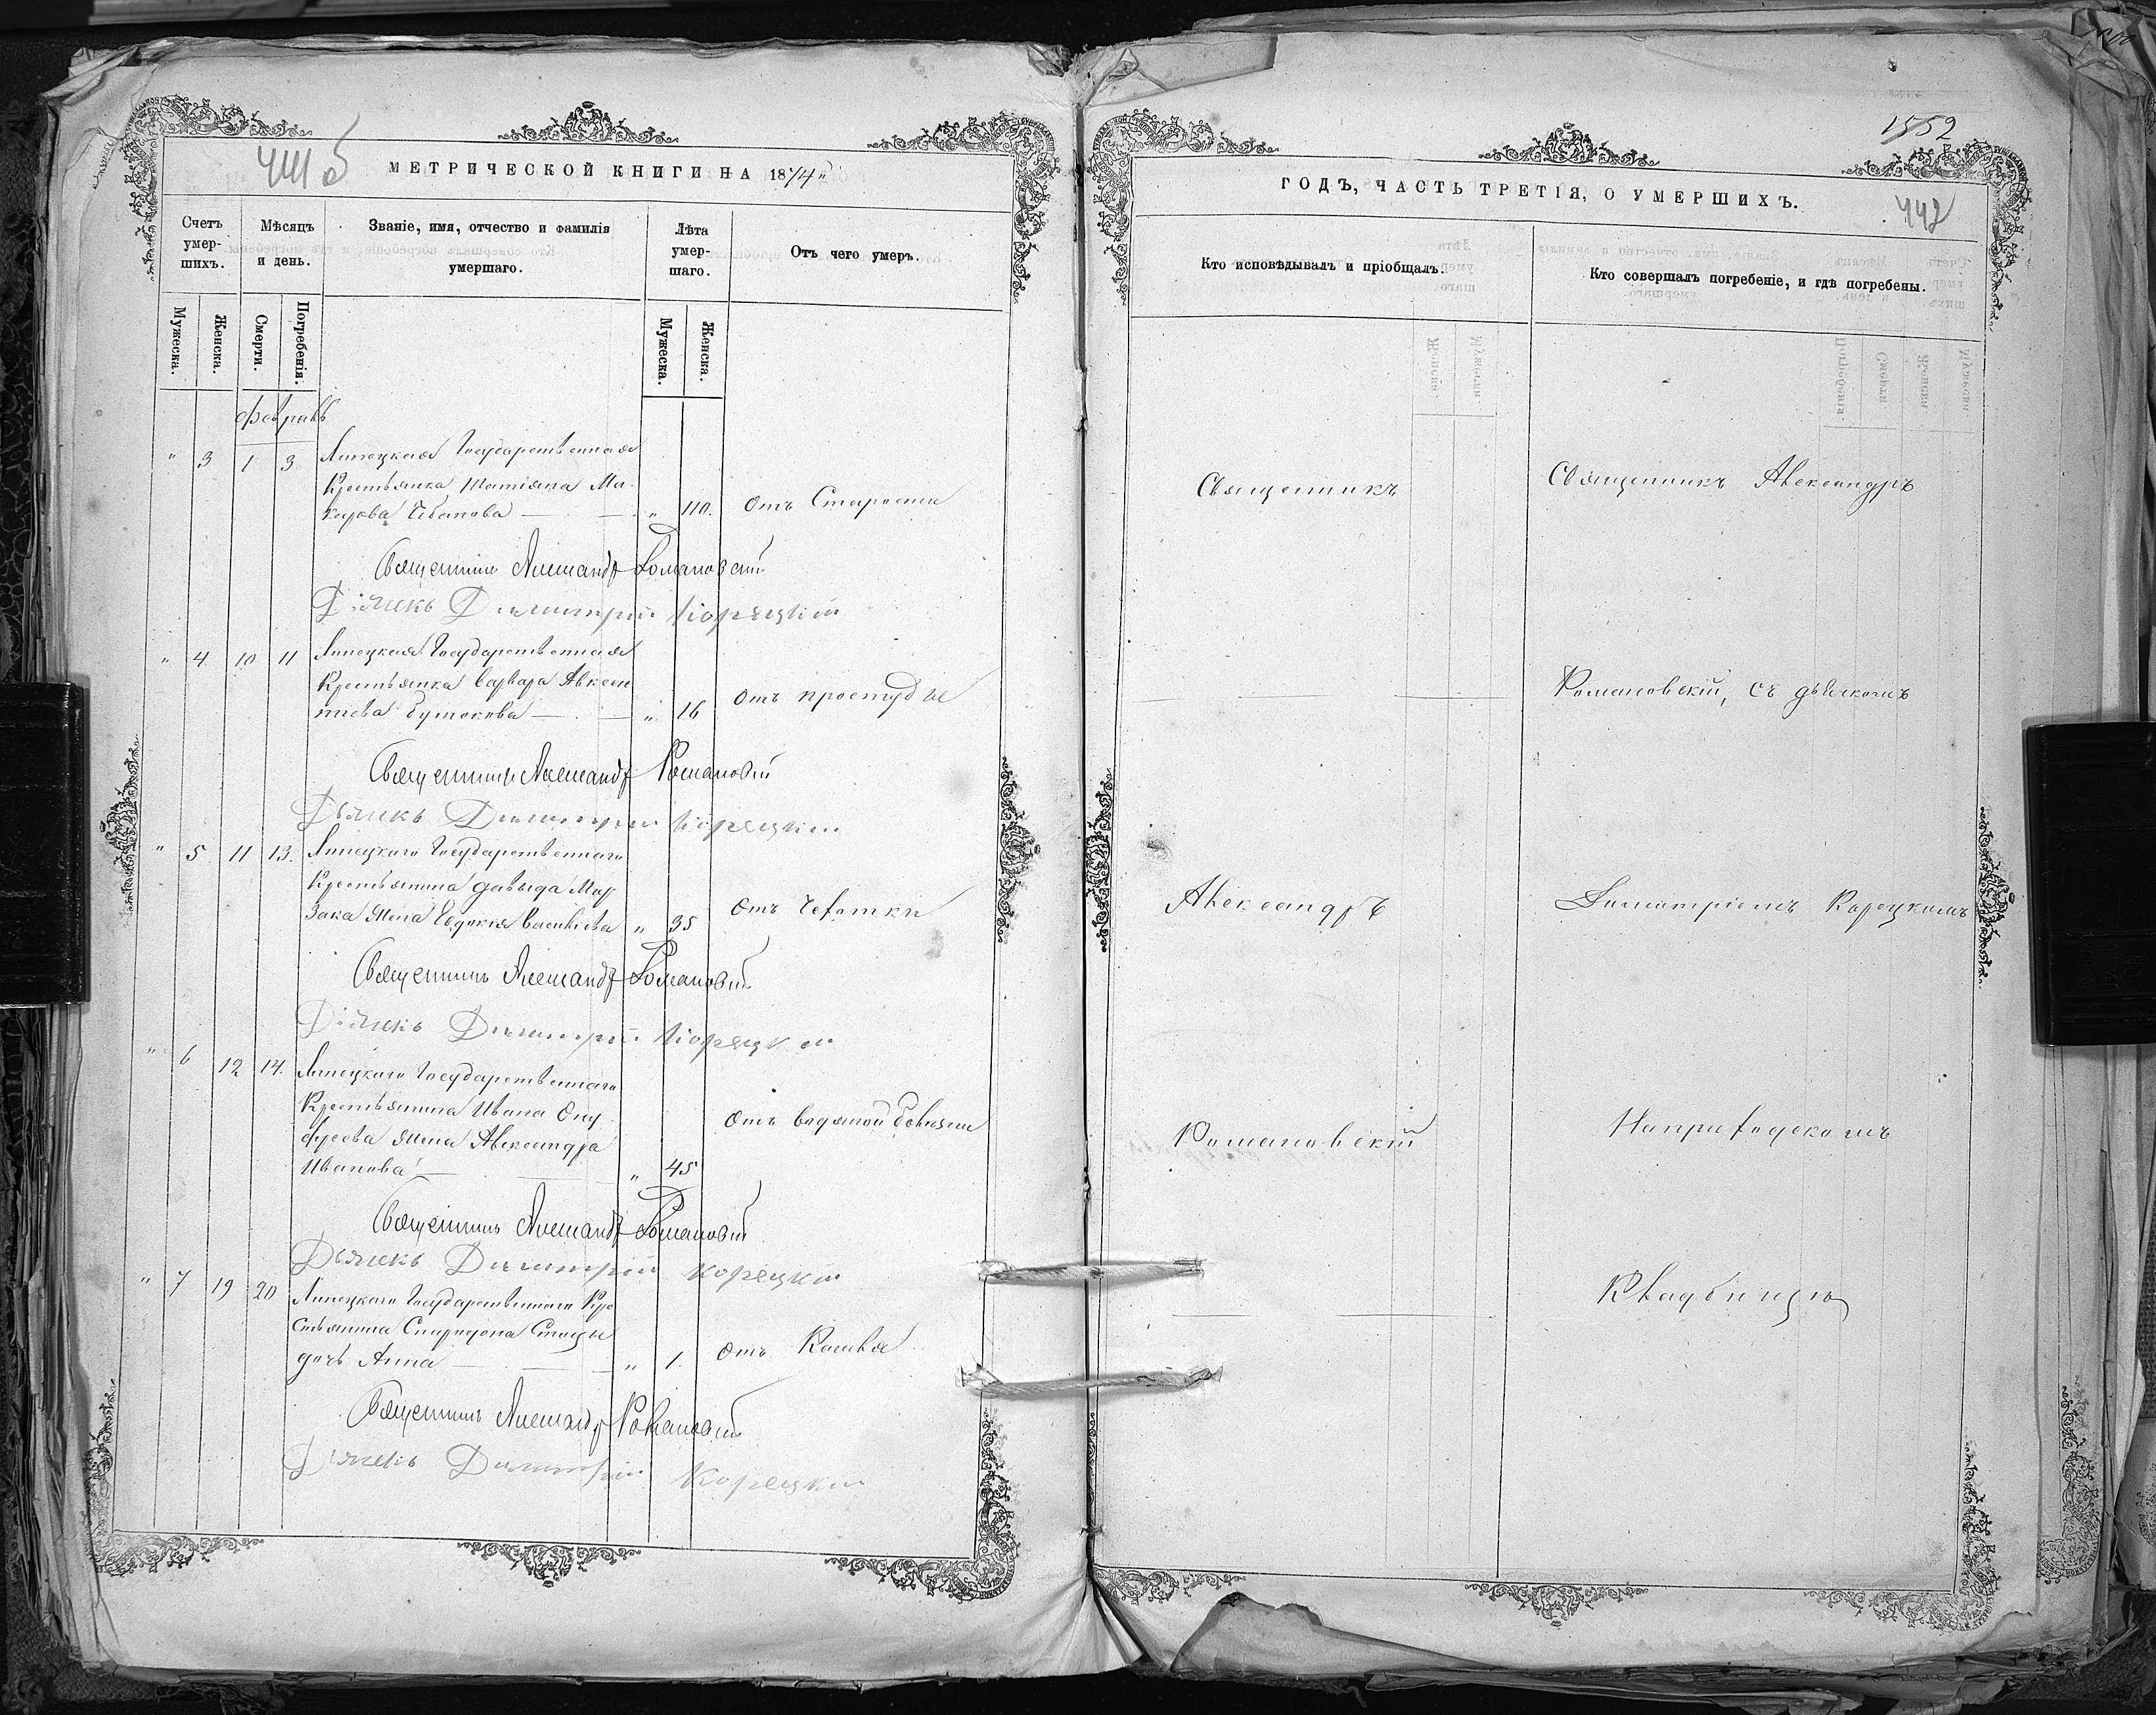 МЕТРИЧЕСКОЙ КНИГИ НА 1874
Счетъ умер-шихъ.
Мѣсяцъ и день.
Званіе, имя, отчество и фамилія умершаго.
Лѣта умер-шаго.
Отъ чего умеръ.
Мужеска.
Женска.
Смерти.
Погребенія.
Мужеска.
Женска.
Февраль
" 3 1 3 Липецкая Государственная
Крестьянка Татіяна Ма-
карова Чебанова " 110. Отъ Старости
Священникъ Александръ Романовскій
Дьячекъ Димитрій Корецкій
" 4 10 11 Липецкая Государственная
Крестьянка Варвара Авксен
тіева " 16 Отъ простуды
Священникъ Александръ Романовскій
Дьячекъ Димитрій Корецкій
" 5 11 13. Липецкаго Государственнаго
Крестьянина Давыда Мар
зака жена Евдокія Васильева " 35 Отъ Чехотки
Священникъ Александръ Романовскій
Дьячекъ Димитрій Корецкій
" 6 12 14. Липецкаго Государственнаго
Крестьянина Ивана Ону
фреева жена Александра Отъ водяной болезни
Иванова " 45
Священникъ Александръ Романовскій
Дьячекъ Димитрій Корецкій
" 7 19 20 Липецкаго Государственнаго Кре
стьянина Спиридона
дочь Анна " 1. Отъ Кашля
Священникъ Александръ Романовскій
Дьячекъ Димитрій Корецкій
1552
ГОДЪ, ЧАСТЬ ТРЕТІЯ, О УМЕРШИХЪ.
442
Кто исповѣдывалъ и пріобщалъ.
Кто совершалъ погребеніе, и гдѣ погребены.
Священникъ
Священникъ Александръ
Романовскій, съ дьячкомъ
Александръ
Димитріемъ Корецкимъ
Романовскій
На приходскомъ
Кладбищѣ